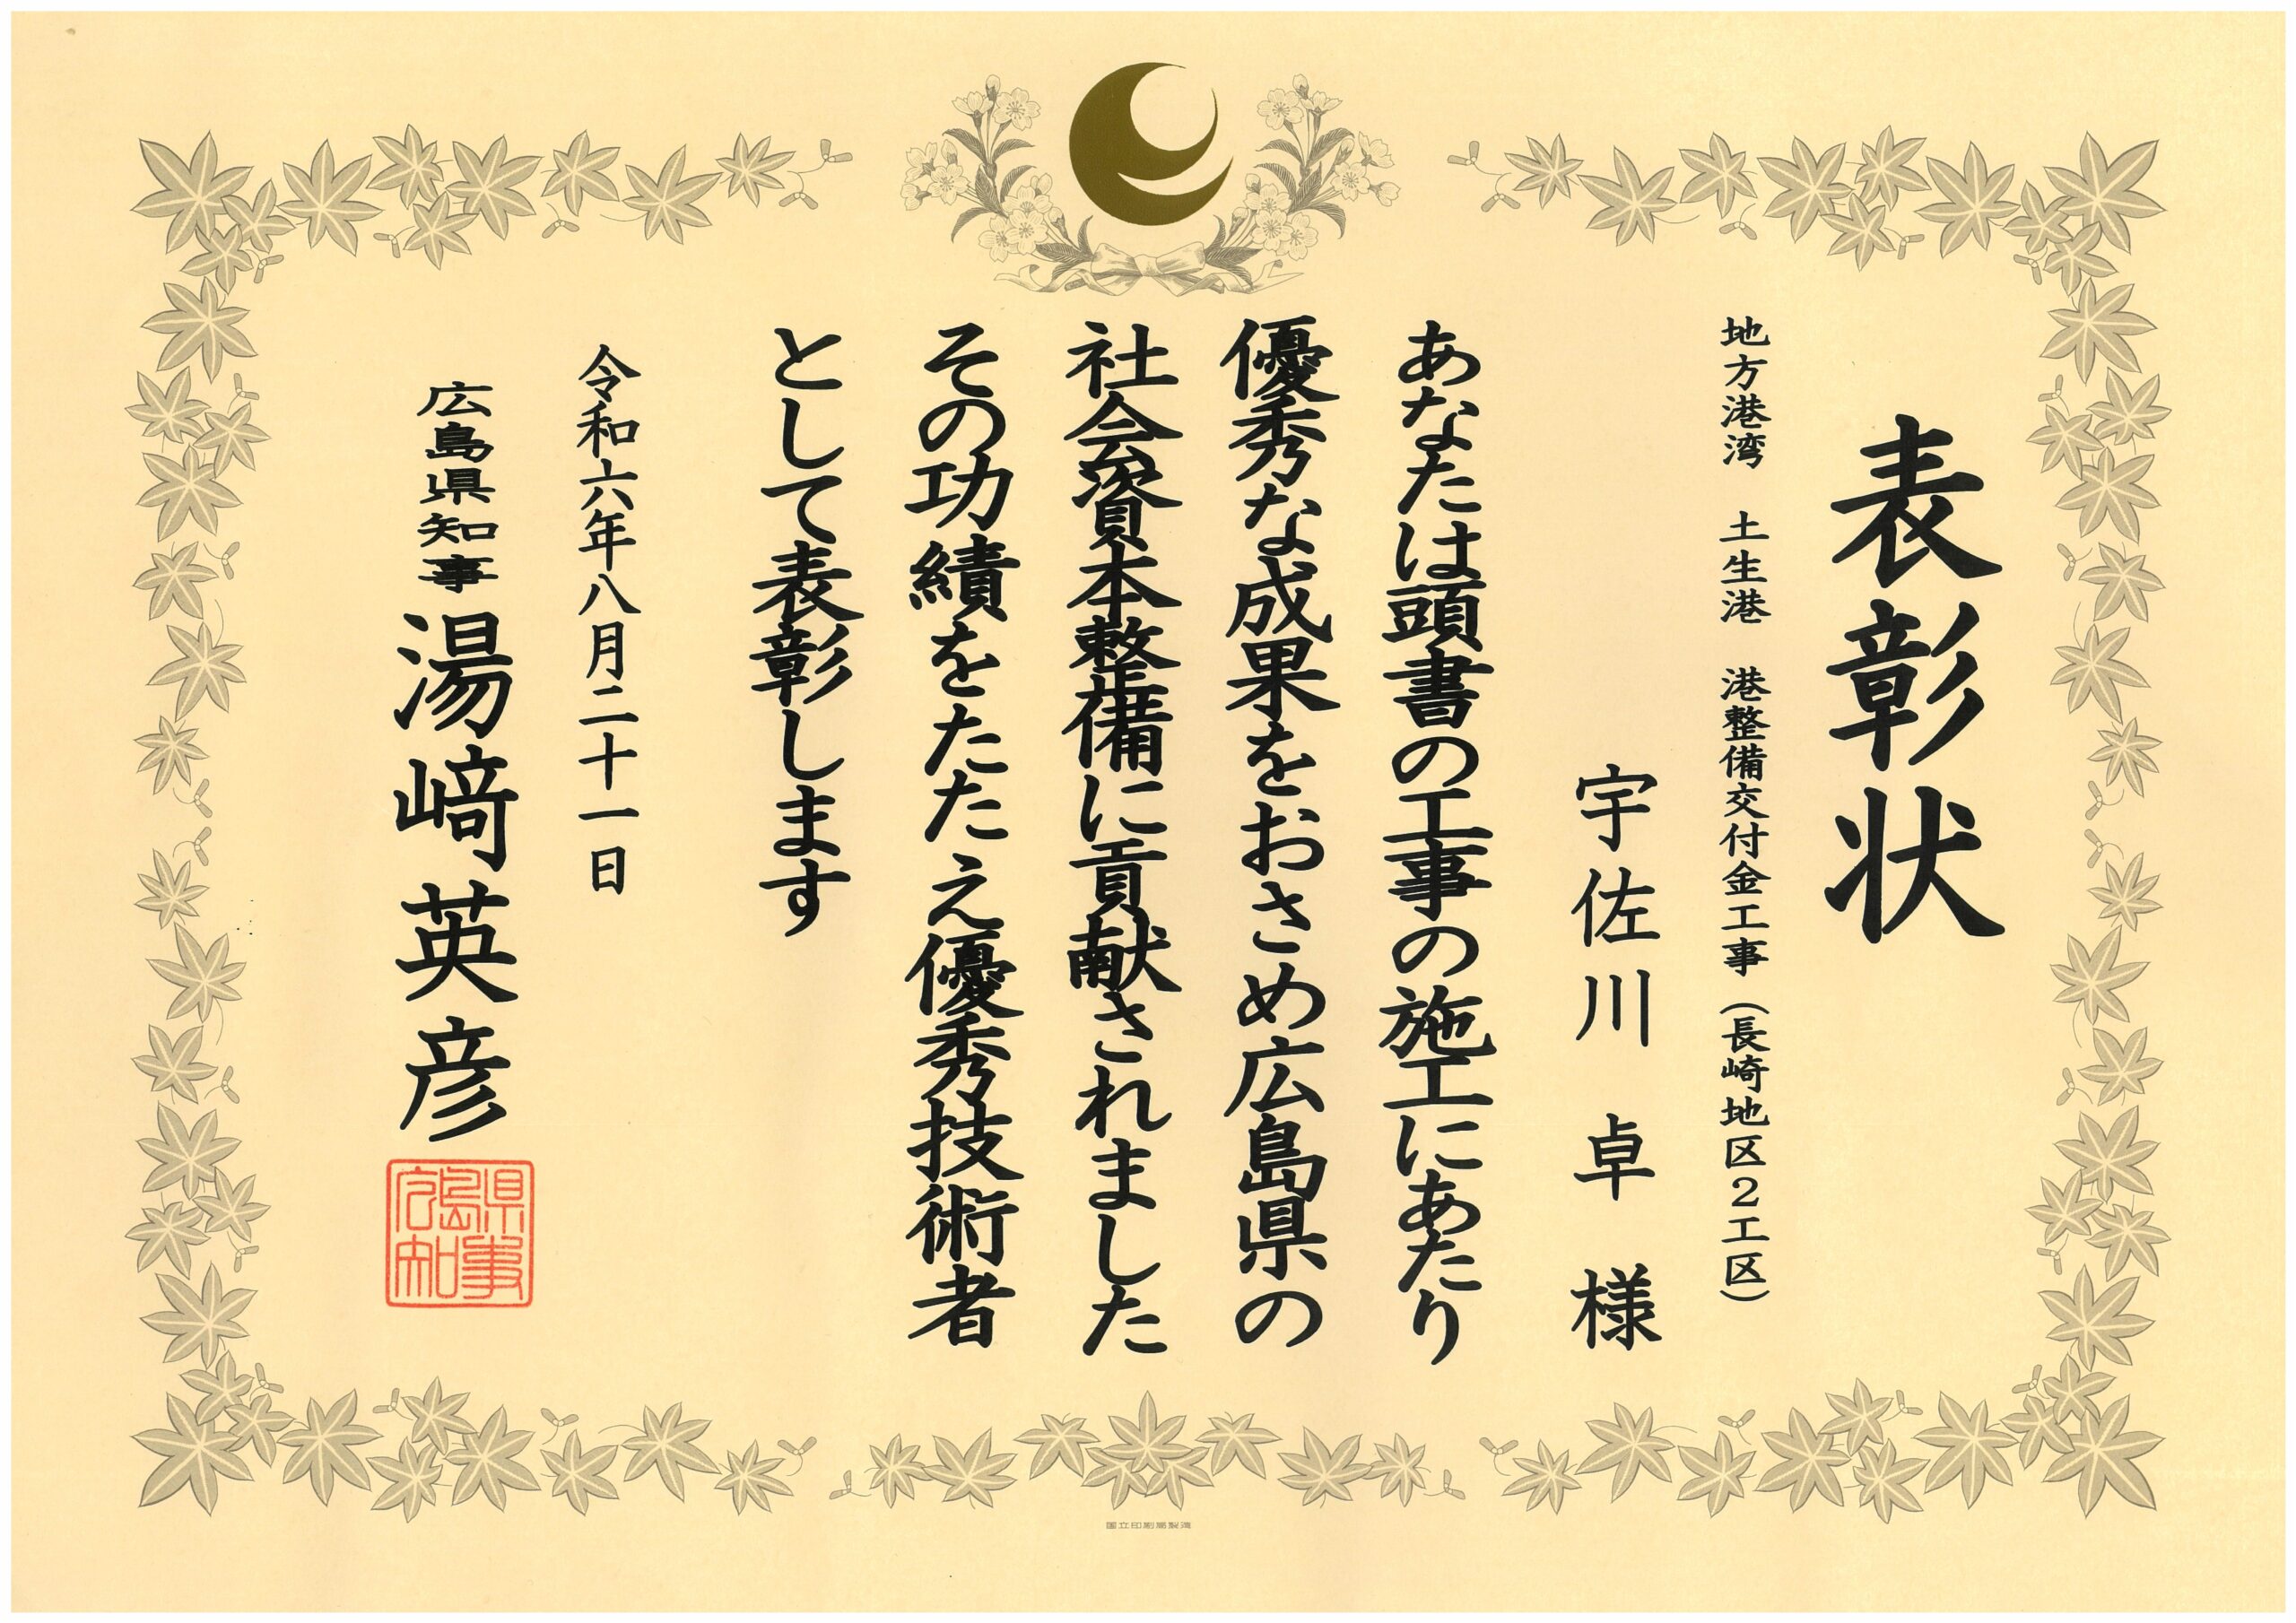 表彰状
地方港湾　土生港　港整備交付金工事（長崎地区２工区）
宇佐川　卓　様
あなたは頭書の工事の施工にあたり
優秀な成果をおさめ広島県の
社会資本整備に貢献されました
その功績をたたえ優秀技術者
として表彰します
令和六年八月二十一日
広島県知事　湯﨑英彦
広島県知事
国立印刷局製造